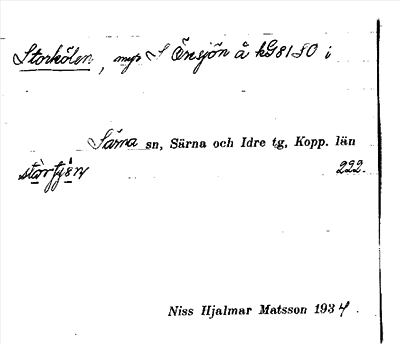 Storkölen, myr S Örsjön å kG8180 i
Särna sn, Särna och Idre tg, Kopp. län
222.
Niss Hjalmar Matsson 1934.